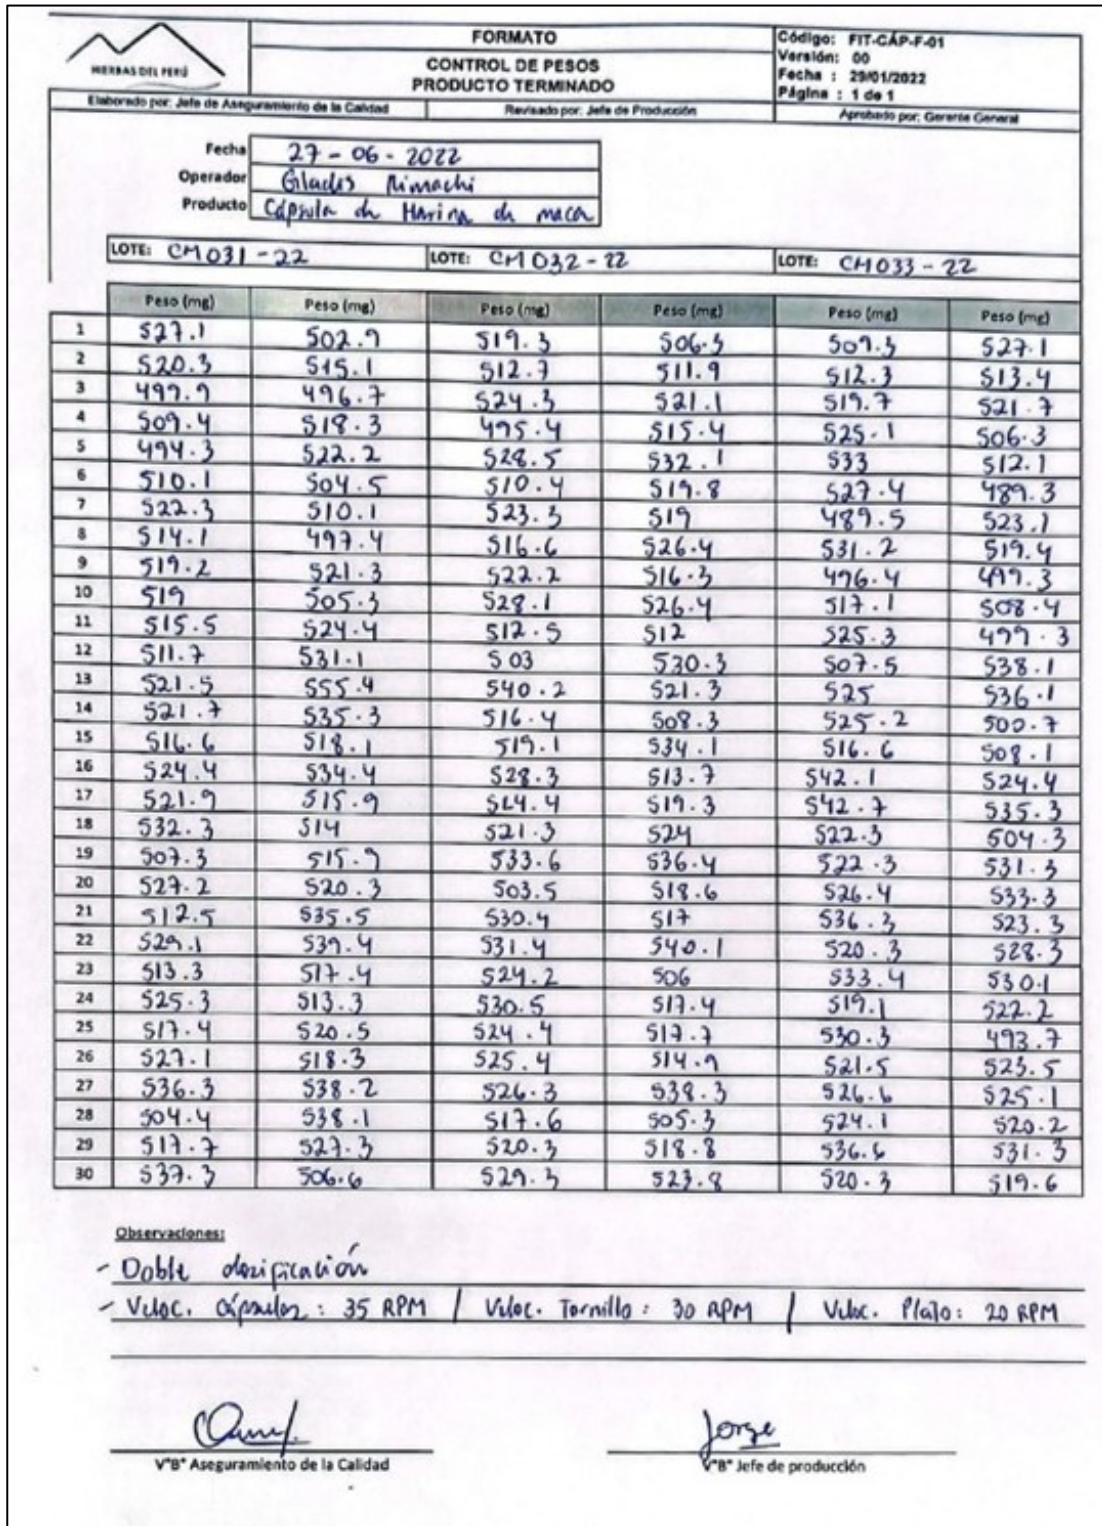 HIERBAS DEL PERÚ
FORMATO
CONTROL DE PESOS
PRODUCTO TERMINADO
Código: FIT-CÁP-F-01
Versión: 00
Fecha : 29/01/2022
Página : 1 de 1
Elaborado por: Jefe de Aseguramiento de la Calidad Revisado por: Jefe de Producción Aprobado por: Gerente General
Fecha 27 - 06 - 2022
Operador Glades Rimachi
Producto Cápsula de Harina de maca
LOTE: CM031-22 LOTE: CM032-22 LOTE: CM033-22
Peso (mg) Peso (mg) Peso (mg) Peso (mg) Peso (mg) Peso (mg)
1 527.1 502.9 519.3 506.3 509.3 527.1
2 520.3 515.1 512.7 511.9 512.3 513.4
3 499.9 496.7 524.3 521.1 519.7 521.7
4 509.4 518.3 495.4 515.4 525.1 506.3
5 494.3 522.2 528.5 532.1 533 512.1
6 510.1 504.5 510.4 519.8 527.4 489.3
7 522.3 510.1 523.3 519 489.5 523.1
8 514.1 497.4 516.6 526.4 531.2 519.4
9 519.2 521.3 522.2 516.3 496.4 499.3
10 519 505.3 528.1 526.4 517.1 508.4
11 515.5 524.4 512.5 512 525.3 499.3
12 511.7 531.1 503 530.3 507.5 538.1
13 521.5 555.4 540.2 521.3 525 536.1
14 521.7 535.3 516.4 508.3 525.2 500.7
15 516.6 518.1 519.1 534.1 516.6 508.1
16 524.4 534.4 528.3 513.7 542.1 524.4
17 521.9 515.9 519.3 542.7 535.3
18 532.3 514 521.3 524 522.3 504.3
19 507.3 515.9 533.6 536.4 522.3 531.3
20 527.2 520.3 503.5 518.6 526.4 533.3
21 512.5 535.5 530.4 517 536.3 523.3
22 529.1 539.4 531.4 540.1 520.3 528.3
23 513.3 517.4 524.2 506 533.4 530.1
24 525.3 513.3 530.5 517.4 519.1 522.2
25 517.4 520.5 524.4 517.7 530.3 493.7
26 527.1 518.3 525.4 514.9 521.5 523.5
27 536.3 538.2 526.3 538.3 526.6 525.1
28 504.4 538.1 517.6 505.3 524.1 520.2
29 517.7 527.3 520.3 518.8 536.6 531.3
30 537.3 506.6 529.3 523.8 520.3 519.6
Observaciones:
- Doble dosificación
- Veloc. Cápsulas : 35 RPM / Veloc. Tornillo : 30 RPM / Veloc. Plato : 20 RPM
Jorge
V°B° Aseguramiento de la Calidad V°B° Jefe de producción